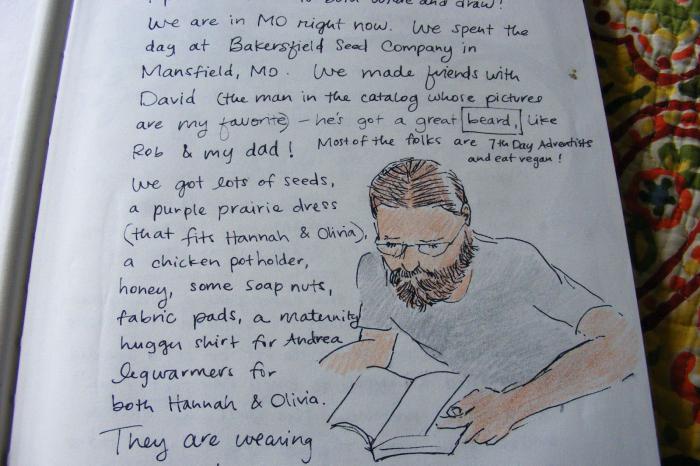 to both write and draw!
We are in MO right now. We spent the
day at Bakersfield Seed Company in
Mansfield, MO. We made friends with
David (the man in the catalog whose pictures
are my favorite) - he's got a great beard, like
Rob & my dad! Most of the folks are 7th Day Adventists
and eat vegan!
We got lots of seeds,
a purple prairie dress
(that fits Hannah & Olivia),
a chicken potholder,
honey, some soap nuts,
fabric pads, a maternity
huggy shirt for Andrea
legwarmers for
both Hannah & Olivia.
They are wearing